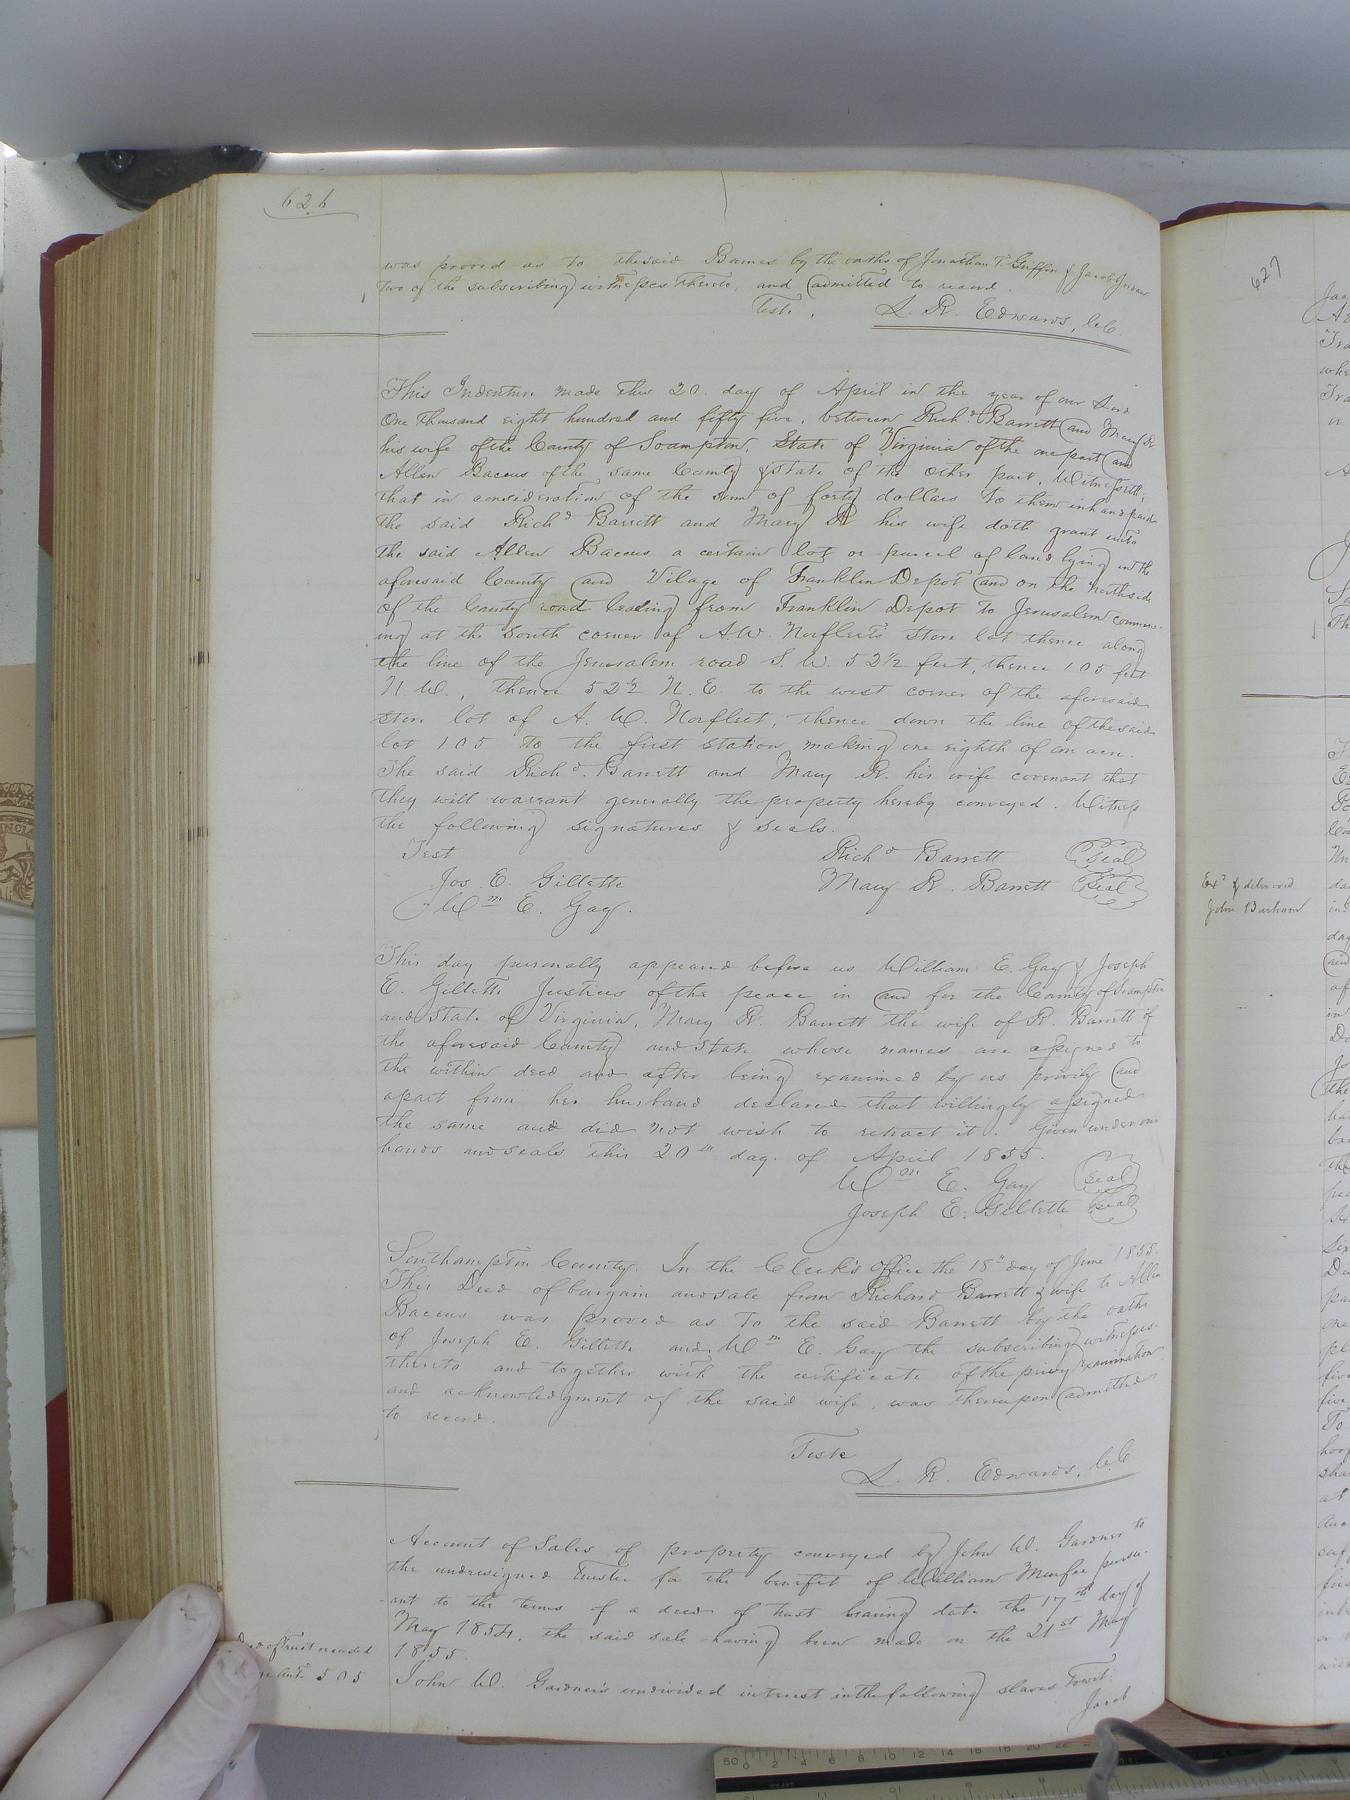 626
was proved as to the said Barnes by the oaths of Jonathan T. Griffin & Jacob
two of the subscribing witnesses thereto, and admitted to record.
Teste, L. R. Edwards, C.C.
This Indenture made this 20. day of April in the year of our Lord
One thousand eight hundred and fifty five, between Richd. Barrett and Mary R.
his wife of the County of Soampton, State of Virginia of the one part and
Allen Baccus of the same County & State of the other part, Witnesseth;
that in consideration of the sum of forty dollars to them in hand paid
the said Richd Barrett and Mary R his wife doth grant unto
the said Allen Baccus a certain lot or parcel of land lying in the
aforesaid County and Vilage of Franklin Depot and on the North side
of the County road leading from Franklin Depot to Jerusalem commenc-
ing at the south corner of A.W. Norfleets store lot thence along
the line of the Jerusalem road S. W. 52½ feet, thence 105 feet
N. W., thence 52½ N. E. to the west corner of the aforesaid
store lot of A. W. Norfleet, thence down the line of the said
lot 105 to the first station making one eighth of an acre.
The said Richd. Barrett and Mary R. his wife covenant that
they will warrant generally the property hereby conveyed. Witness
the following signatures & seals.
Test Richd Barrett (seal)
Jos. E. Gillette Mary R. Barrett (seal)
Wm E. Gay.
This day personally appeared before us William E. Gay & Joseph
E. Gillette Justices of the peace in and for the County of Soampton
and State of Virginia, Mary R. Barrett the wife of R. Barrett of
the aforesaid County and State whose names are assigned to
the within deed and after being examined by us privily and
apart from her husband declared that willingly assigned
the same and did not wish to retract it. Given under our
hands and seals this 20th day. of April 1855.
Wm E. Gay (seal)
Joseph E. Gillette (seal)
Southampton County. In the Clerk's Office the 18th day of June 1855.
This Deed of bargain and sale from Richard Barrett & wife to Allen
Baccus was proved as to the said Barrett by the oaths
of Joseph E. Gillette and Wm E. Gay the subscribing witnesses
thereto and together with the certificate of the privy examination
and acknowledgment of the said wife, was thereupon admitted
to record.
Teste
L. R. Edwards, C.C.
Account of Sales of property conveyed by John W. Gardner to
the undersigned Trustee for the benefit of William Murfee pursu-
-ant to the terms of a deed of trust bearing date the 17th day of
May 1854, the said sale having been made on the 21st May
1855.
Deed of Trust recorded
ante 505
John W. Gardner's undivided interest in the following slaves Towit:
Jacob
627
Exd & delivered
John Barham